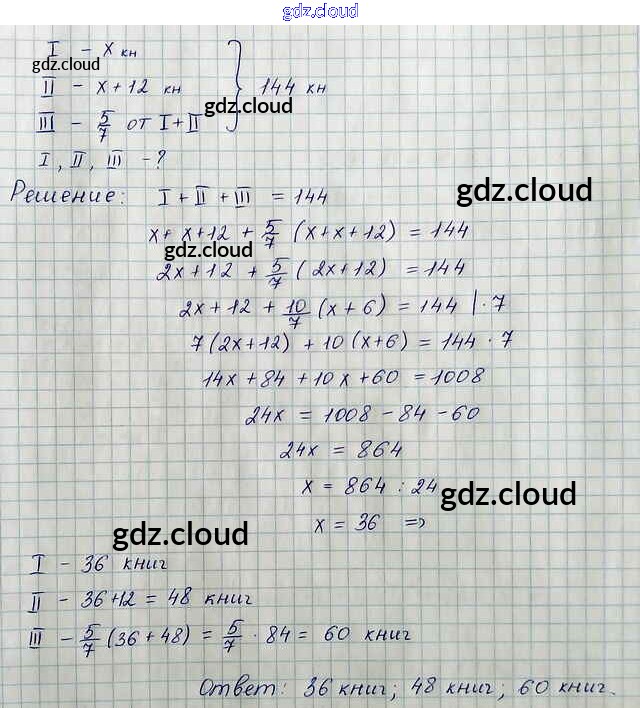 gdz.cloud
I – x кн
gdz.cloud
II – x + 12 кн } 144 кн
gdz.cloud
III – 5/7 от I + II
I, II, III – ?
Решение: I + II + III = 144
gdz.cloud
x + x + 12 + 5/7 (x + x + 12) = 144
gdz.cloud
2x + 12 + 5/7 (2x + 12) = 144
2x + 12 + 10/7 (x + 6) = 144 | · 7
7 (2x + 12) + 10 (x + 6) = 144 · 7
14x + 84 + 10x + 60 = 1008
24x = 1008 – 84 – 60
24x = 864
x = 864 : 24
gdz.cloud
x = 36 =>
gdz.cloud
I – 36 книг
II – 36 + 12 = 48 книг
III – 5/7 (36 + 48) = 5/7 · 84 = 60 книг
Ответ: 36 книг; 48 книг; 60 книг.